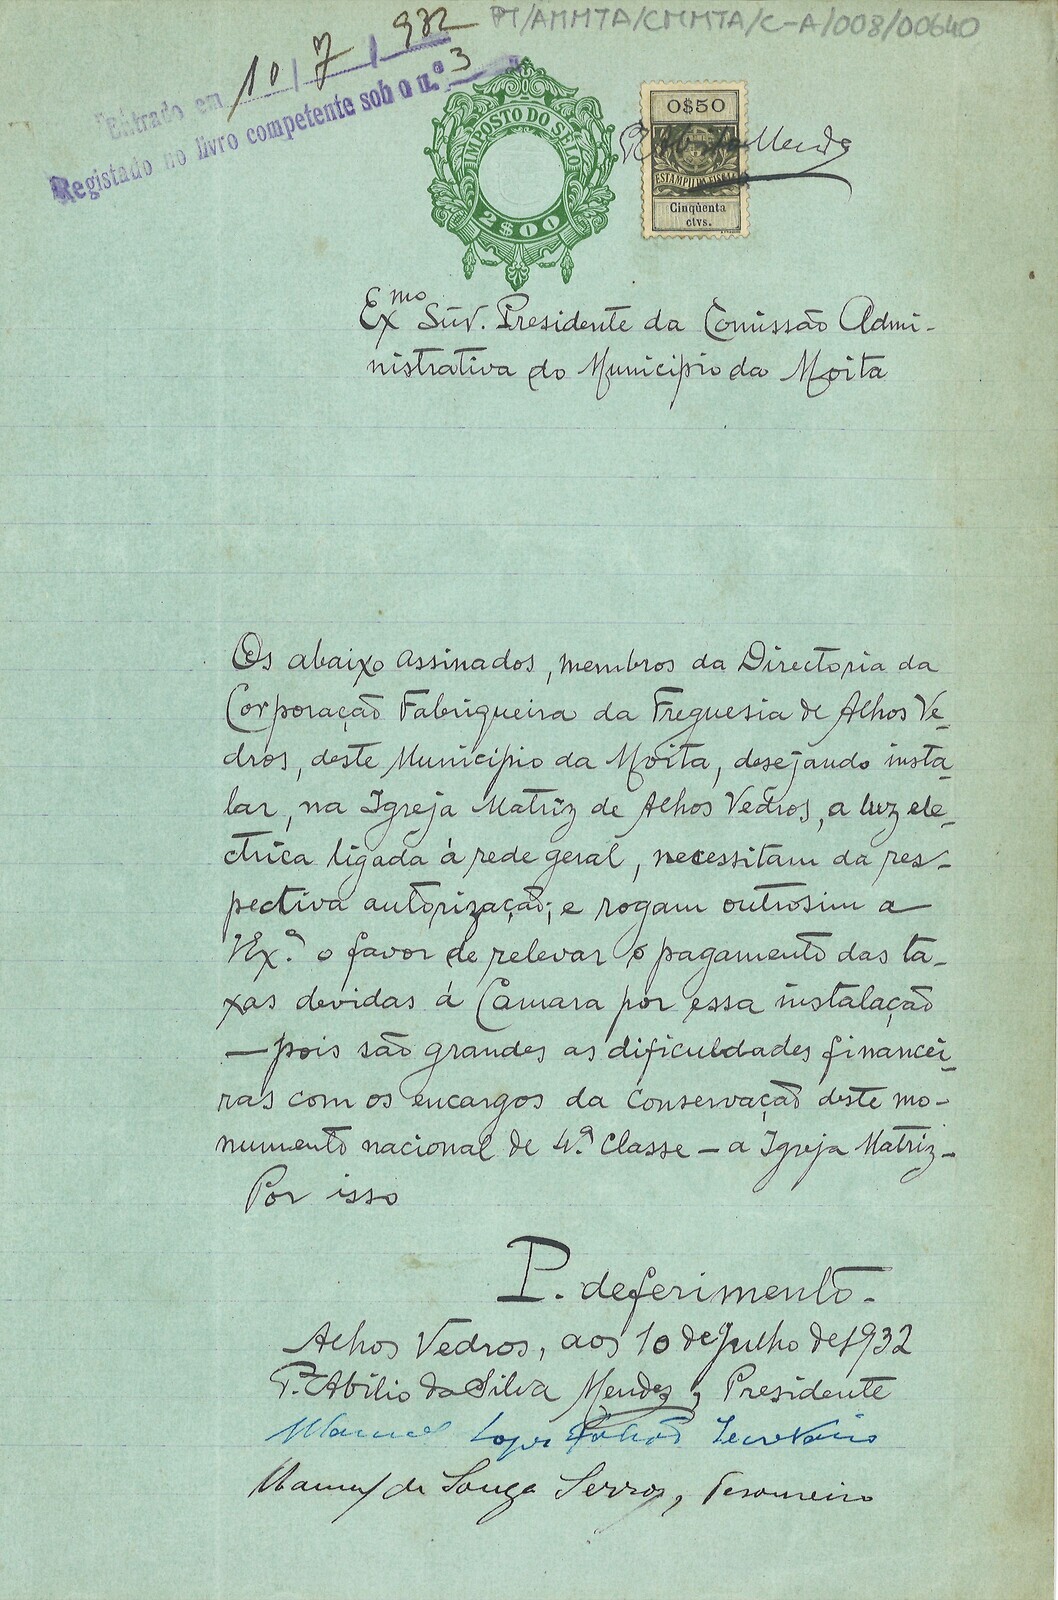 PT/AMMTA/CMMTA/C-A/008/00640
Entrado em 10/7/932
Registado no livro competente sob o n.º 3
IMPOSTO DO SELO
2$00
0$50
ESTAMPILHA FISCAL
Cinqüenta
ctvs.
Mendes
Exmo Snr. Presidente da Comissão Admi-
nistrativa do Municipio da Moita
Os abaixo assinados, membros da Directoria da
Corporação Fabriqueira da Freguesia de Alhos Ve-
dros, deste Municipio da Moita, desejando insta-
lar, na Igreja Matriz de Alhos Vedros, a luz ele-
ctrica ligada á rede geral, necessitam da res-
pectiva autorização; e rogam outrosim a
V.Ex.ª o favor de relevar o pagamento das ta-
xas devidas á Camara por essa instalação
— pois são grandes as dificuldades financei-
ras com os encargos da conservação deste mo-
numento nacional de 4.ª classe — a Igreja Matriz.
Por isso
P. deferimento.
Alhos Vedros, aos 10 de Julho de 1932
P.e Abilio da Silva Mendes, Presidente
Manuel Lopes Secretário
Manuel de Sousa Serra, Tesoureiro